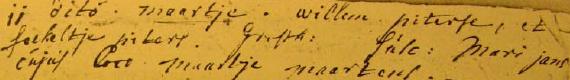 ij ditó . maartje . willem piterse, et
fockeltje piters . Susc: Mari jans
cujus loco maartje maartens.